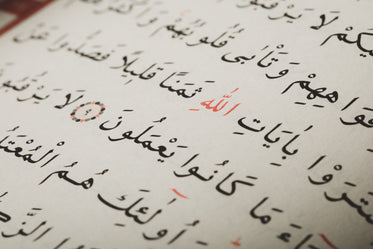 لَا يَرْقُبُوا
فِيكُمْ لَا يَرْ
بِأَفْوَاهِهِمْ وَتَأْبَىٰ قُلُوبُهُمْ وَأَكْثَرُ
اشْتَرَوْا بِآيَاتِ اللَّهِ ثَمَنًا قَلِيلًا فَصَدُّوا عَنْ
سَاءَ مَا كَانُوا يَعْمَلُونَ ۹ لَا يَرْقُبُو
أُولَٰئِكَ هُمُ الْمُعْتَدُ
الزَّكَا